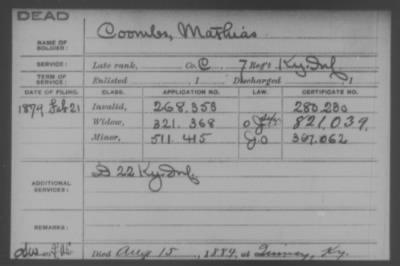 DEAD
NAME OF SOLDIER: Coombs, Mathias
SERVICE: Late rank, Co. C 7 Reg't Ky. Inf
TERM OF SERVICE: Enlisted , 1 Discharged , 1
DATE OF FILING. CLASS. APPLICATION NO. LAW. CERTIFICATE NO.
1879 Feb 21 Invalid, 268.353 280.230
Widow, 321.368 821,039.
Minor, 511.415 G.O 367.062
ADDITIONAL SERVICES: D 22 Ky. Inf.
REMARKS:
Died Aug 15, 1884, at Quincy, Ky.